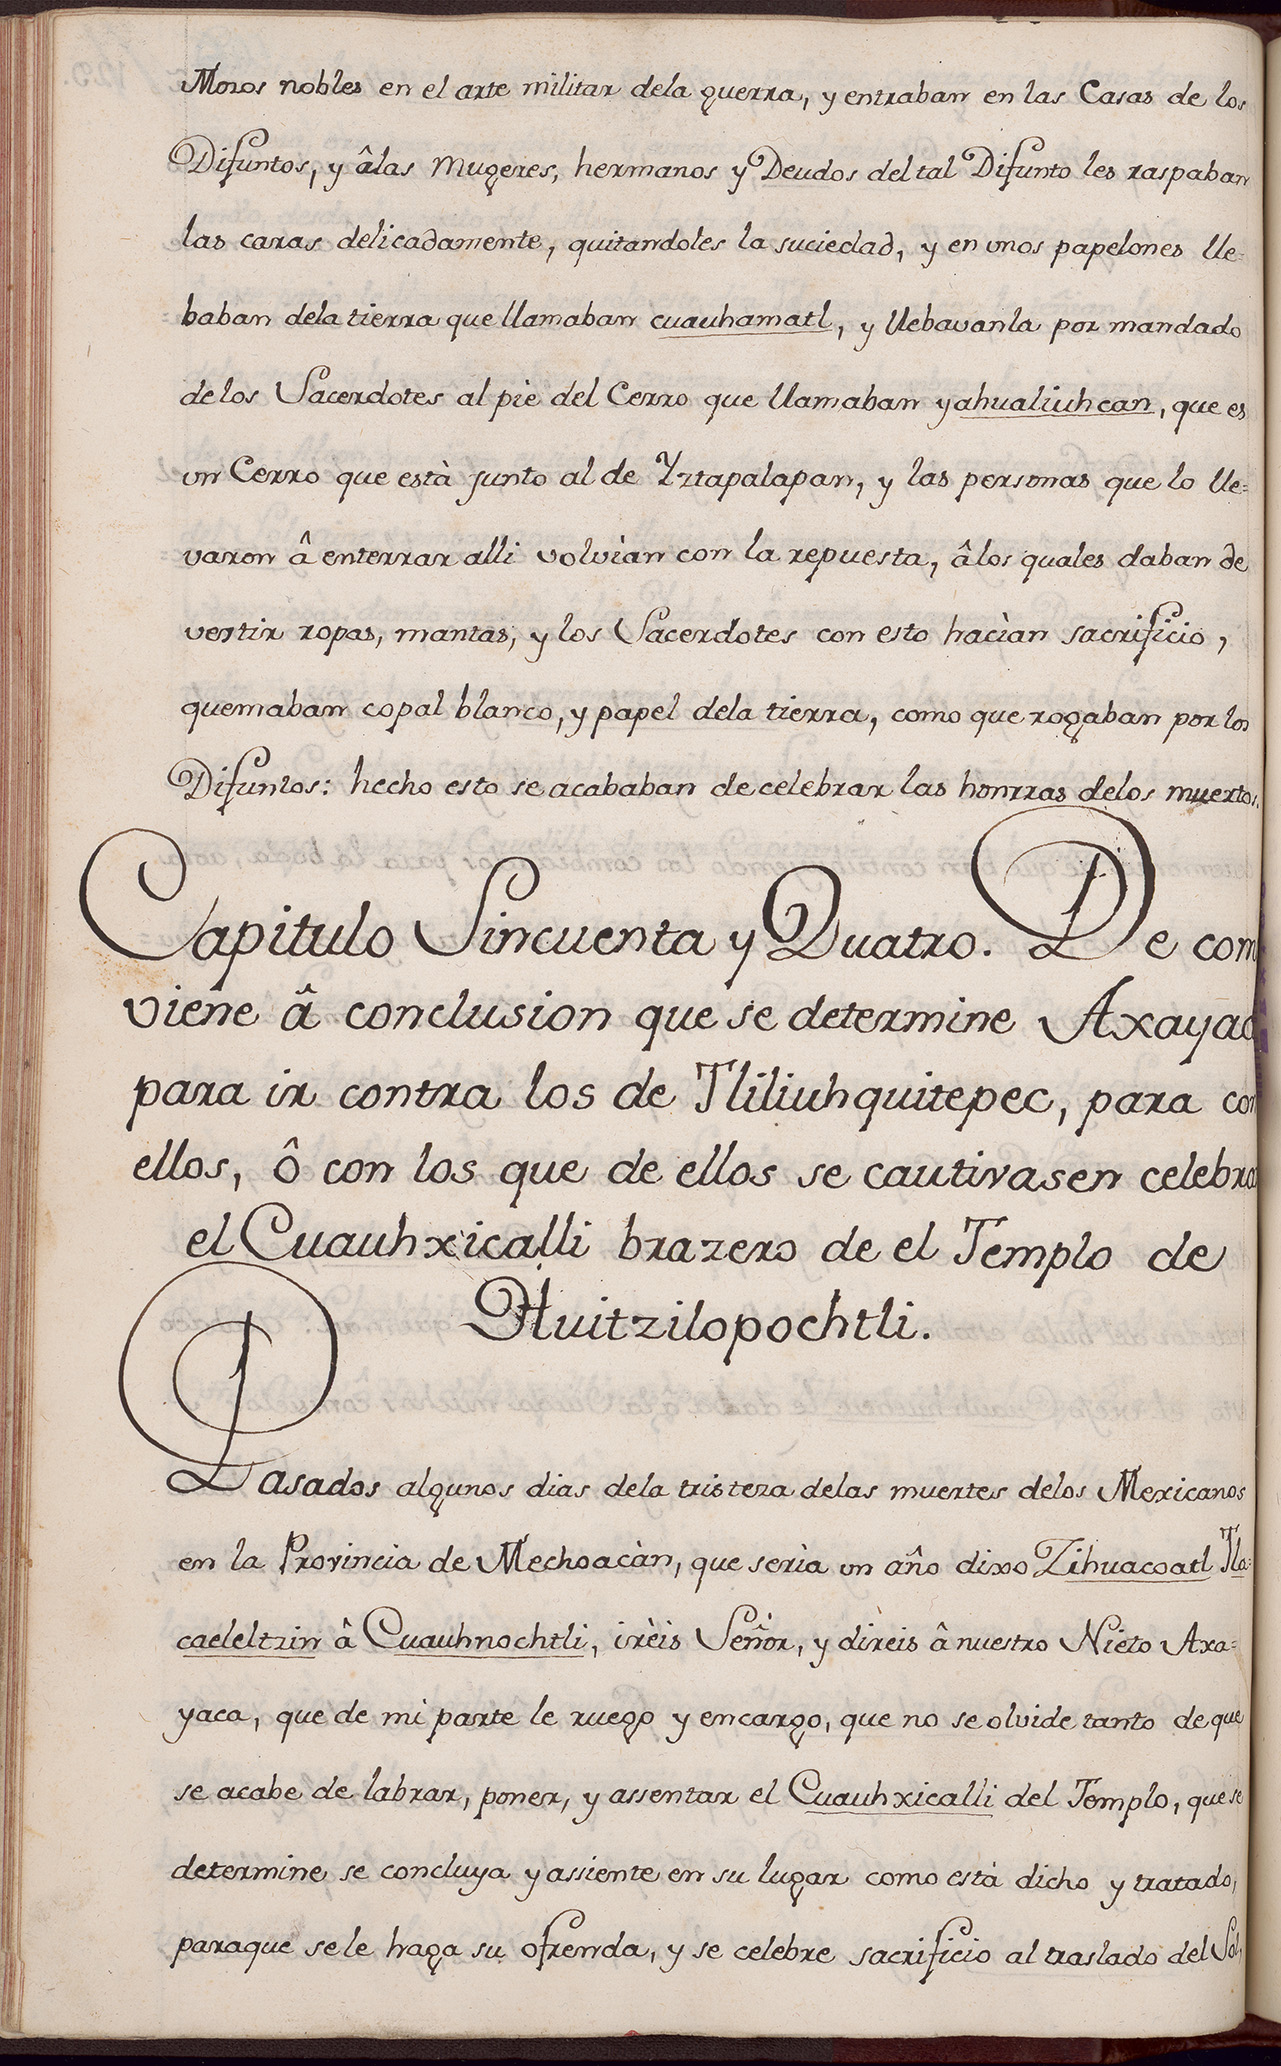 Mozos nobles en el arte militar dela guerra, y entraban en las Casas de los
Difuntos, y âlas Mugeres, hermanos y Deudos del tal Difunto les raspaban
las caras delicadamente, quitandoles la suciedad, y en unos papelones lle=
baban dela tierra que llamaban cuauhamatl, y llebavanla por mandado
de los Sacerdotes al pie del Cerro que llamaban yahualiuhcan, que es
un Cerro que està junto al de Yztapalapan, y las personas que lo lle=
varon â enterrar alli volvian con la repuesta, âlos quales daban de
vestir ropas, mantas, y los Sacerdotes con esto hacian sacrificio,
quemaban copal blanco, y papel dela tierra, como que rogaban por los
Difuntos: hecho esto se acababan de celebrar las honrras delos muertos.
Capitulo Sincuenta y Quatro. De com
viene â conclusion que se determine Axayac
para ir contra los de Tliliuhquitepec, para con
ellos, ô con los que de ellos se cautivasen celebrar
el Cuauhxicalli brazero de el Templo de
Huitzilopochtli.
Pasados algunos dias dela tristeza delas muertes delos Mexicanos
en la Provincia de Mechoacàn, que serìa un año dixo Zihuacoatl Tla=
caeleltzin â Cuauhnochtli, irèis Señor, y direis â nuestro Nieto Axa=
yaca, que de mi parte le ruego y encargo, que no se olvide tanto de que
se acabe de labrar, poner, y assentar el Cuauhxicalli del Templo, que se
determine se concluya y assiente en su lugar como està dicho y tratado,
paraque sele haga su ofrenda, y se celebre sacrificio al traslado del Sol,